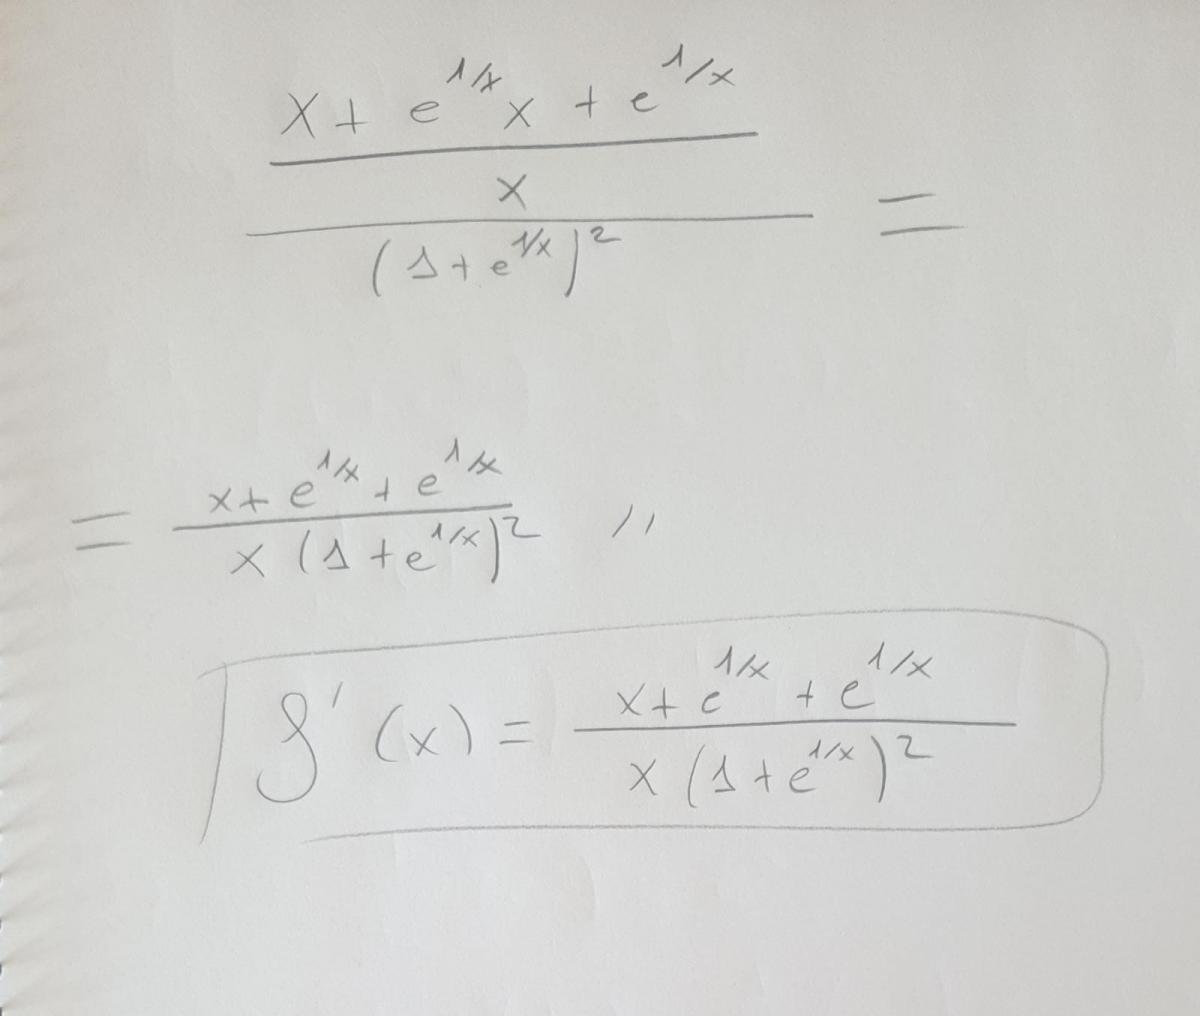 x + e^{1/x} x + e^{1/x}
x
(1 + e^{1/x})^2 =
= x + e^{1/x} + e^{1/x}
x (1 + e^{1/x})^2 //
f'(x) = x + e^{1/x} + e^{1/x}
x (1 + e^{1/x})^2